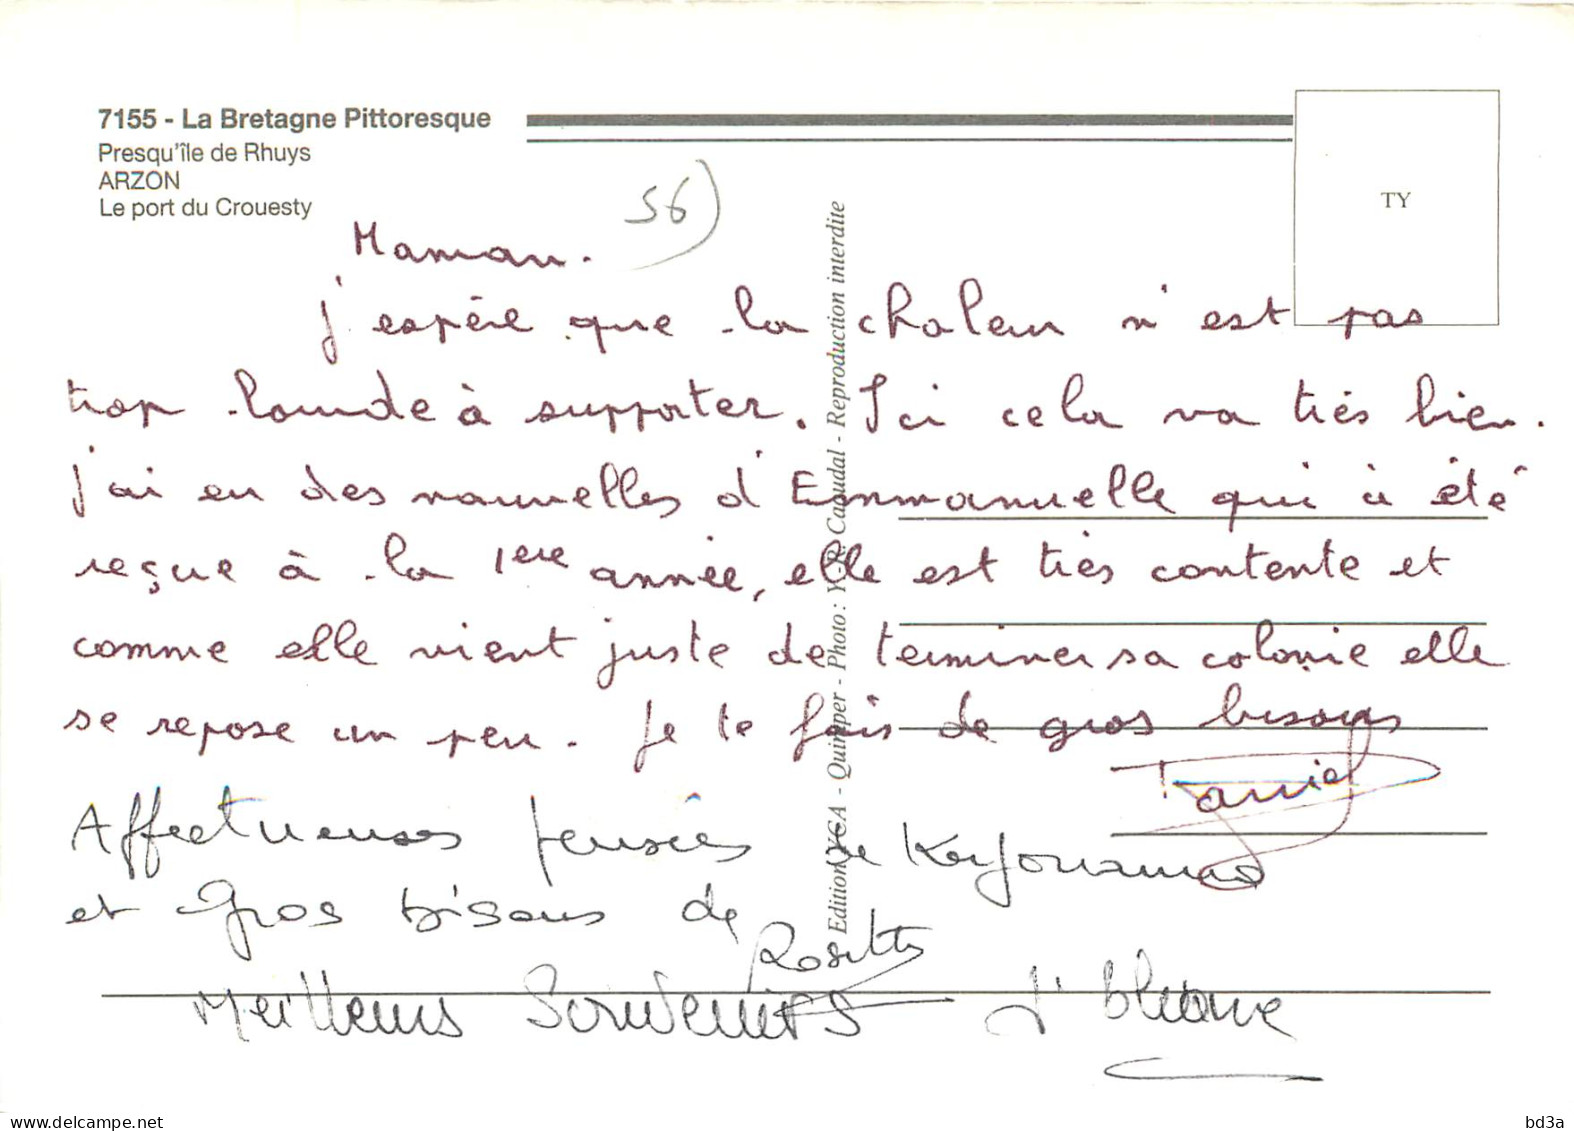 7155 - La Bretagne Pittoresque
Presqu'île de Rhuys
ARZON
Le port du Crouesty
56)
TY
Maman.
j'espère que la chaleur n'est pas
trop lourde à supporter. Ici cela va très bien.
j'ai eu des nouvelles d'Emmanuelle qui à été
reçue à la 1ère année, elle est très contente et
comme elle vient juste de terminer sa colonie elle
se repose un peu. Je te fais de gros bisous
Daniel
Affectueuses pensées de
et Gros bisous de
Rosette
Meilleurs Souvenirs
Edition YCA - Quimper - Photo : Y.-R. Caoudal - Reproduction interdite
www.delcampe.net
bd3a